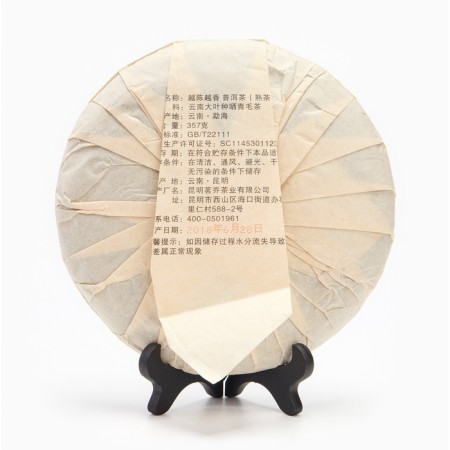 名称：越陈越香 普洱茶（熟茶
料：云南大叶种晒青毛茶
产地：云南·勐海
量：357克
标准：GB/T22111
生产许可证号：SC1145301123
存期：在符合贮存条件下本品适
条件：在清洁、通风、避光、干
无污染的条件下储存
地：云南·昆明
厂：昆明茗乔茶业有限公司
址：昆明市西山区海口街道办事
里仁村588-2号
系电话：400-0501961
产日期：2018年6月28日
馨提示：如因储存过程水分流失导致
差属正常现象